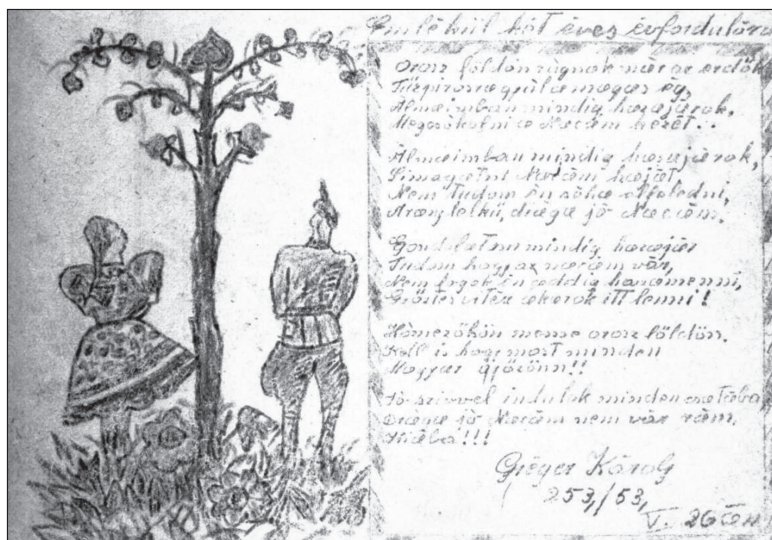 Emlékül hét éves évfordulóra
Orosz földön már az erdők
ég,
Álmaimban mindig hazajárok,
Megcsókolni a kezét..
Álmaimban mindig hazajárok,
Simogatni haját
Nem tudom én soha elfeledni,
Arany lelkű, drága jó
Gondolatom mindig hazajár
Tudom hogy az vár,
Nem fogok én addig hazamenni,
vitéz akarok itt lenni!
Hómezőkön messze orosz földön.
Kell is hogy most minden
Magyar győzönn!!
Jó szivvel indulok minden csatába
Drága jó nem vár rám,
Hiába!!!
Károly
253,/53,
V. 26 án